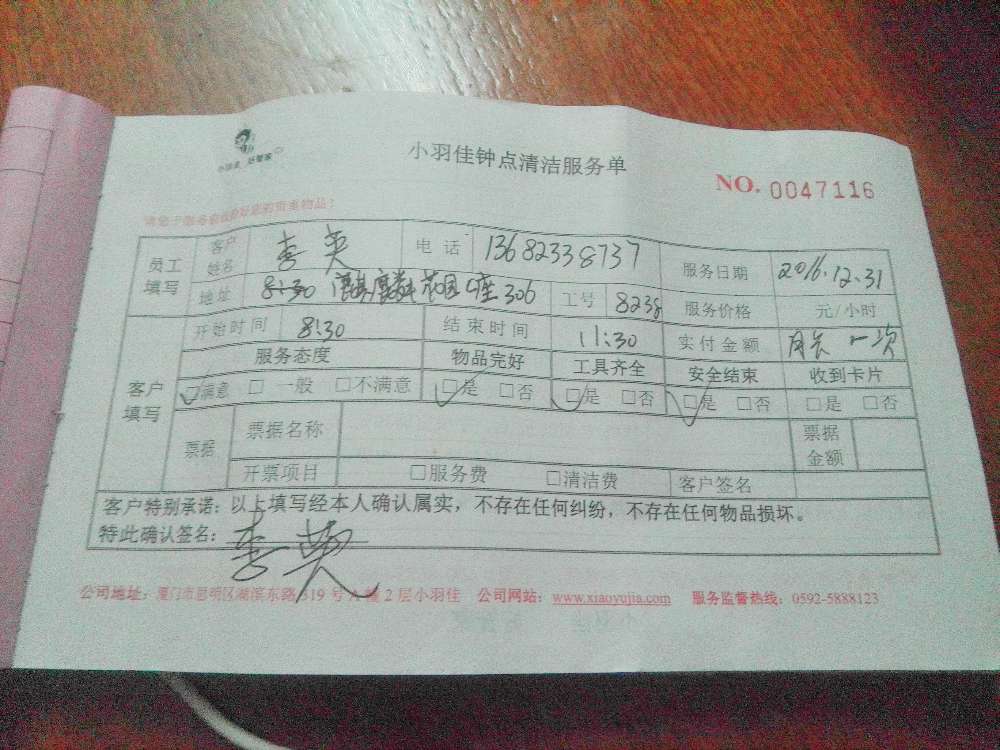 小羽佳 好管家
小羽佳钟点清洁服务单
NO. 0047116
员工填写 客户姓名 李英 电话 13682338737 服务日期 2016.12.31
地址 8:30 花园 座306 工号 8238 服务价格 元/小时
客户填写 开始时间 8:30 结束时间 11:30 实付金额 一次
服务态度 物品完好 工具齐全 安全结束 收到卡片
☑满意 □一般 □不满意 ☑是 □否 ☑是 □否 ☑是 □否 □是 □否
票据 票据名称 票据金额
开票项目 □服务费 □清洁费 客户签名
客户特别承诺：以上填写经本人确认属实，不存在任何纠纷，不存在任何物品损坏。
特此确认签名：李英
公司地址：厦门市思明区湖滨东路319号A幢2层小羽佳 公司网站：www.xiaoyujia.com 服务监督热线：0592-5888123